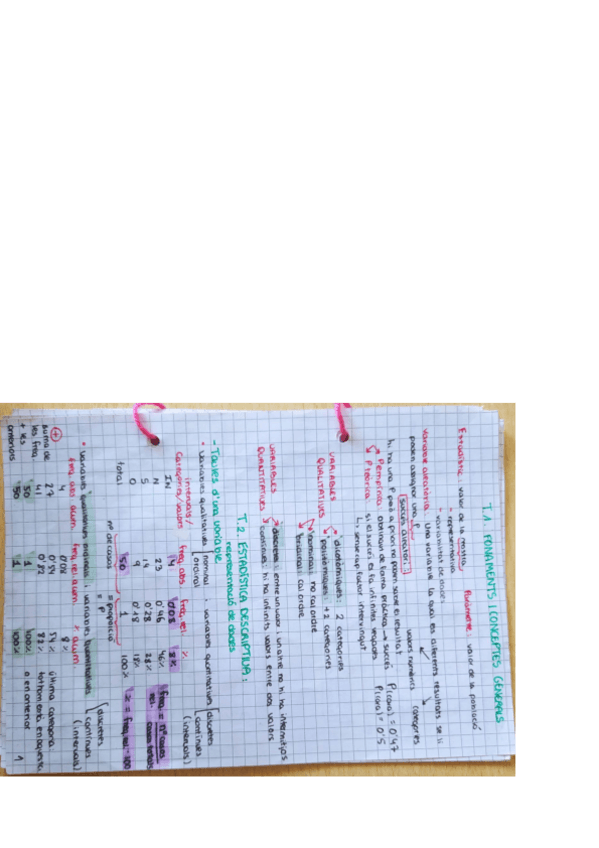 T.1. FONAMENTS I CONCEPTES GENERALS
Estadístic: valor de la mostra    Paràmetre: valor de la població
- representativa
- variabilitat de dades
variable aleatòria: una variable la qual els diferents resultats se li
poden assignar una p.    valors numèrics    categories
succés aleatori:
hi ha una p però a priori no podem saber el resultat
P empírica: obtinguin de forma pràctica → succés    P(cara) = 0'47
P teòrica: si el succés es fa infinites vegades    P(cara) = 0'5
↳ sense cap factor interxingut
VARIABLES QUALITATIVES
dicotòmiques: 2 categories
politòmiques: +2 categories
nominal: no cal ordre
ordinal: cal ordre
VARIABLES QUANTITATIVES
discretes: entre un valor i un altre no hi ha intermitjos
contínues: hi ha infinits valors entre dos valors
T.2. ESTADÍSTICA DESCRIPTIVA:
representació de dades
- Taules d'una variable
• variables qualitatives [nominal ordinal ; variables quantitatives [discretes contínues (intervals)
intervals/
Categoria/valors    freq. abs.    freq. rel.    %
IN    4    0'08    8%
N    23    0'46    46%
S    14    0'28    28%
O    9    0'18    18%
total    50    1    100%
freq rel = nº casos / casos totals
% = freq. rel · 100
nº de casos    = proporció = P
• variables qualitatives ordinals i variables quantitatives [discretes contínues (intervals)
freq. abs. acum.    freq. rel. acum.    % acum.
4    0'08    8%
27    0'54    54%    última categoria
41    0'82    82%    total
50    1    100%    o en anterior
+ suma de les freq. + les anteriors
50    1    100%
1